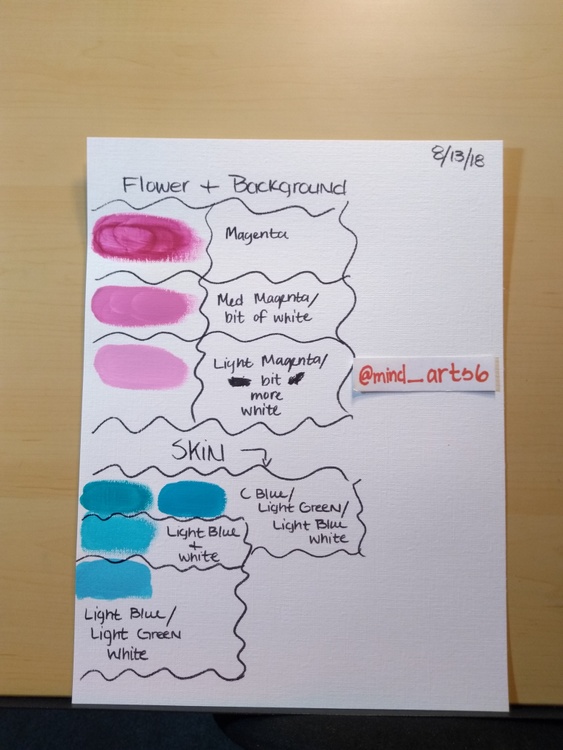 8/13/18
Flower + Background
Magenta
Med Magenta/
bit of white
Light Magenta/
bit
more
white
@mind_arts6
SKIN
C Blue/
Light Green/
Light Blue
White
Light Blue
+
white
Light Blue/
Light Green
White